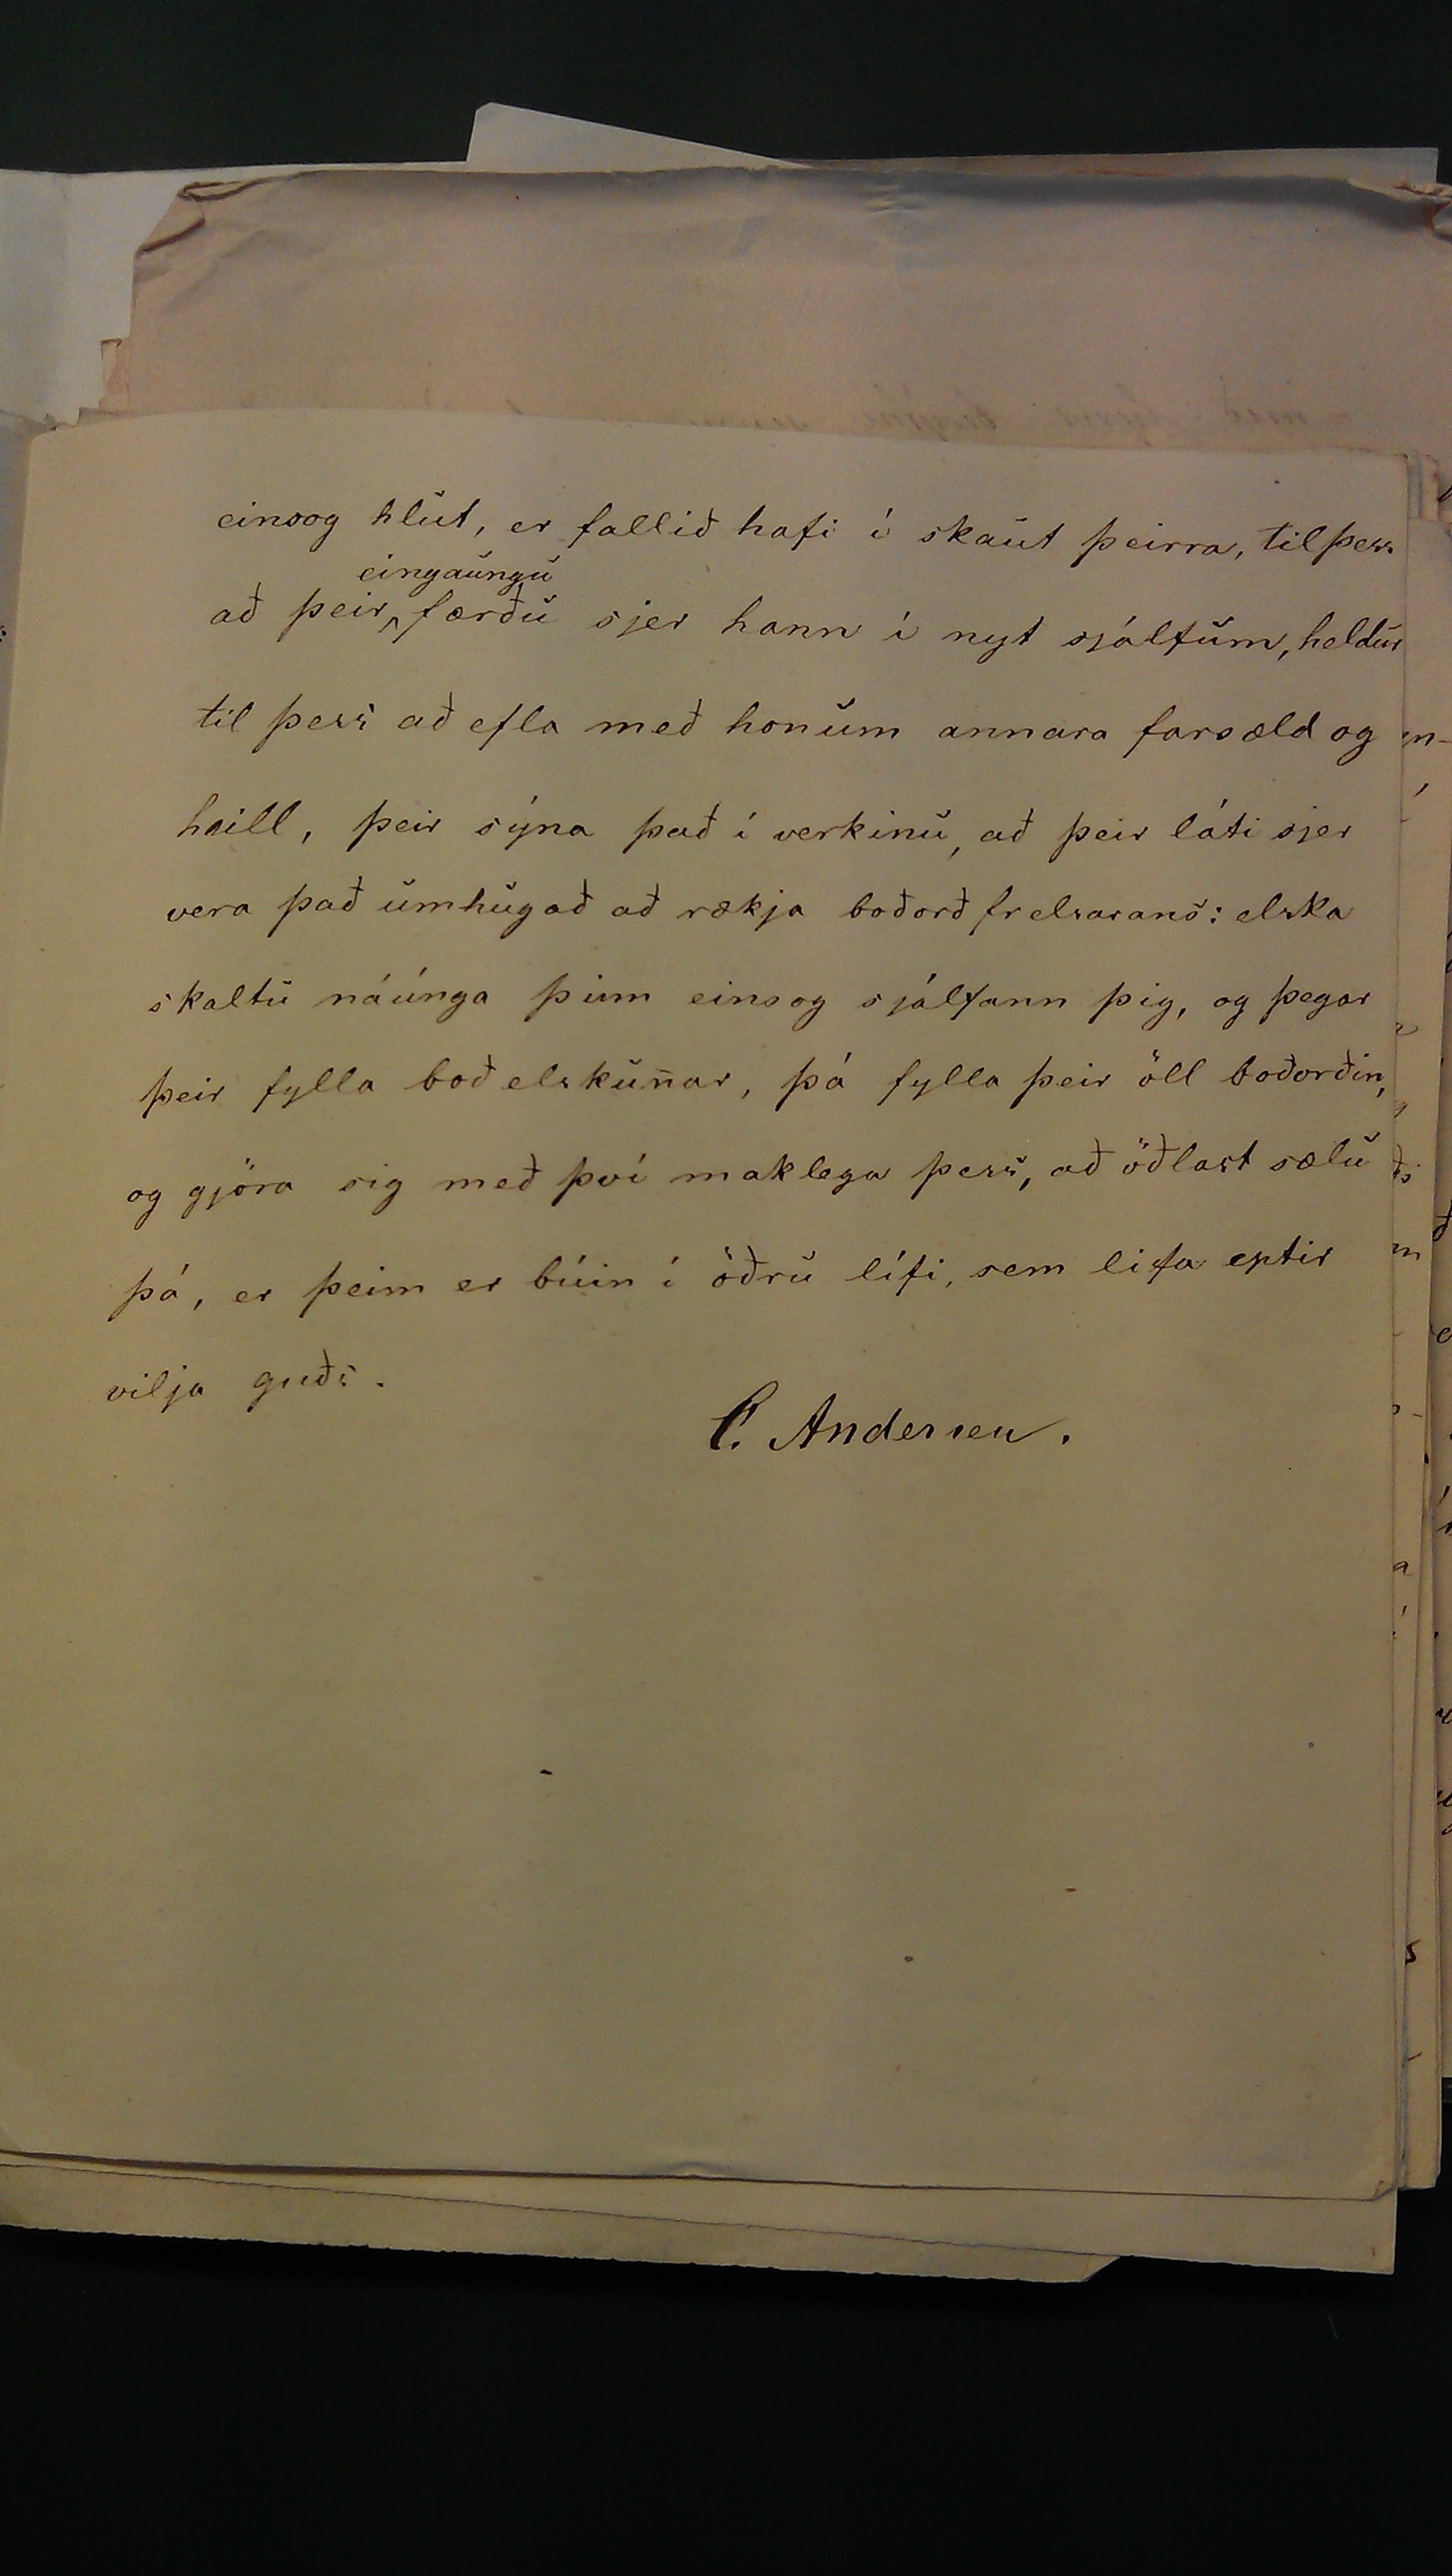 einsog hlut, er fallið hafi í skaut þeirra, til þess
eingaungu
að þeir ^ færðu sjer hann í nyt sjálfum, heldur
til þess að efla með honum annara farsæld og
heill, þeir sýna það í verkinu, að þeir láti sjer
vera það umhugað að rækja boðorð frelsarans: elska
skaltu náúnga þinn einsog sjálfann þig, og þegar
þeir fylla boð elskun̄ar, þá fylla þeir öll boðorðin,
og gjöra sig með því maklega þess, að öðlast sælu
þá, er þeim er búin í öðru lífi, sem lifa eptir
vilja guðs.
C. Andersen.